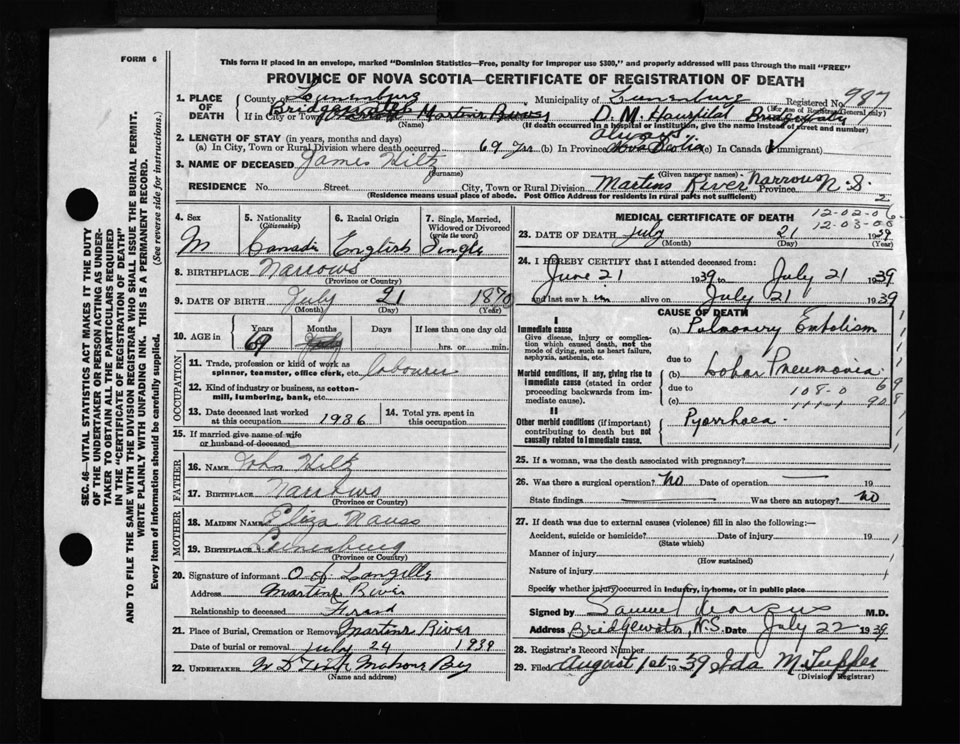 FORM 6
This form if placed in an envelope, marked "Dominion Statistics—Free, penalty for improper use $300," and properly addressed will pass through the mail "FREE"
PROVINCE OF NOVA SCOTIA—CERTIFICATE OF REGISTRATION OF DEATH
SEC. 46—VITAL STATISTICS ACT MAKES IT THE DUTY
OF THE UNDERTAKER OR PERSON ACTING AS UNDER-
TAKER TO OBTAIN ALL THE PARTICULARS REQUIRED
IN THE "CERTIFICATE OF REGISTRATION OF DEATH"
AND TO FILE THE SAME WITH THE DIVISION REGISTRAR WHO SHALL ISSUE THE BURIAL PERMIT.
WRITE PLAINLY WITH UNFADING INK. THIS IS A PERMANENT RECORD.
Every item of information should be carefully supplied. (See reverse side for instructions.)
1. PLACE OF DEATH County of Lunenburg Municipality of Lunenburg Registered No 987
(For use of Registrar General only)
If in City or Town Bridgewater Martins River D. M. Hospital Bridgewater
(Name) (If death occurred in a hospital or institution, give the name instead of street and number)
2. LENGTH OF STAY (in years, months and days)
(a) In City, Town or Rural Division where death occurred 69 Yrs (b) In Province always Nova Scotia (c) In Canada (if immigrant)
3. NAME OF DECEASED James Hiltz
(Surname) (Given name or names)
RESIDENCE No. Street City, Town or Rural Division Martins River Narrows Province N.S.
(Residence means usual place of abode. Post Office Address for residents in rural parts not sufficient) 2
4. Sex M
5. Nationality (Citizenship) Canada
6. Racial Origin English
7. Single, Married, Widowed or Divorced (write the word) Single
8. BIRTHPLACE Narrows
(Province or Country)
9. DATE OF BIRTH July 21 1870
(Month) (Day) (Year)
10. AGE in Years 69 Months Days If less than one day old
hrs. or min.
OCCUPATION
11. Trade, profession or kind of work as spinner, teamster, office clerk, etc. labourer
12. Kind of industry or business, as cotton-mill, lumbering, bank, etc.
13. Date deceased last worked at this occupation 1936
14. Total yrs. spent in this occupation
15. If married give name of wife or husband of deceased
FATHER
16. NAME John Hiltz
17. BIRTHPLACE Narrows
(Province or Country)
MOTHER
18. MAIDEN NAME Eliza Nauss
19. BIRTHPLACE Lunenburg
(Province or Country)
20. Signature of informant O A Langille
Address Martins River
Relationship to deceased Friend
21. Place of Burial, Cremation or Removal Martins River
Date of burial or removal July 24 1939
22. UNDERTAKER Mahone Bay
(Name and address)
MEDICAL CERTIFICATE OF DEATH 12-02-06
12-03-06
23. DATE OF DEATH July 21 1939
(Month) (Day) (Year)
24. I HEREBY CERTIFY that I attended deceased from:
June 21 1939 to July 21 1939
and last saw him alive on July 21 1939
CAUSE OF DEATH
I
Immediate cause
Give disease, injury or complication which caused death, not the mode of dying, such as heart failure, asphyxia, asthenia, etc.
(a) Pulmonary Embolism
due to
Morbid conditions, if any, giving rise to immediate cause (stated in order proceeding backwards from immediate cause).
(b) Lobar Pneumonia
due to 108-0 69
(c) 908
II
Other morbid conditions (if important) contributing to death but not causally related to immediate cause.
Pyorrhoea
25. If a woman, was the death associated with pregnancy?
26. Was there a surgical operation? No Date of operation 19
State findings Was there an autopsy? No
27. If death was due to external causes (violence) fill in also the following:—
Accident, suicide or homicide? Date of injury 19
(State which)
Manner of injury
(How sustained)
Nature of injury
Specify whether injury occurred in industry, in home, or in public place
Signed by Samuel Marcus M.D.
Address Bridgewater, N.S. Date July 22 1939
28. Registrar's Record Number
29. Filed August 1st 1939 Ida M Tupper
(Division Registrar)